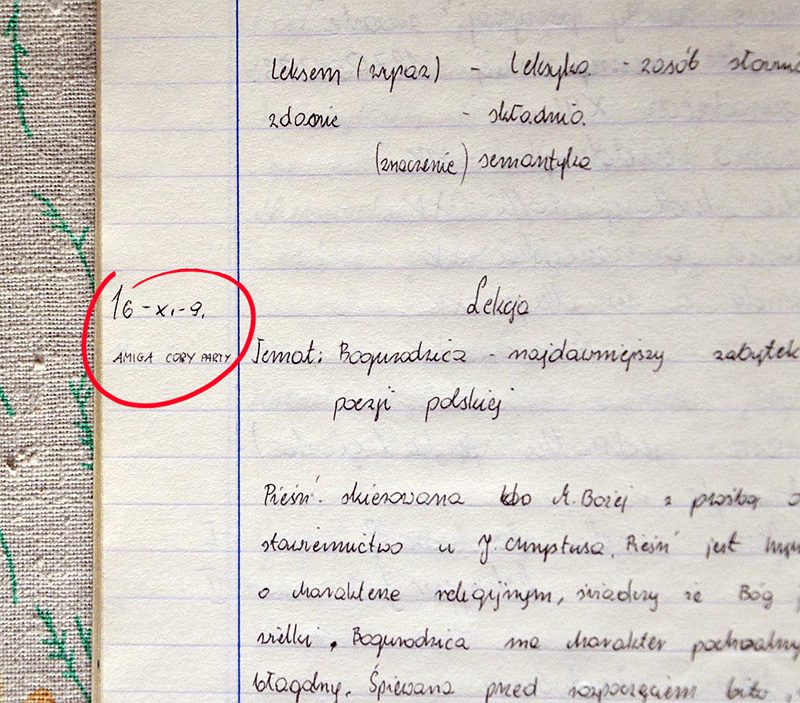 leksem (wyraz) - leksyka - zasób słowni
zdanie - składnia.
(znaczenie) semantyka
16-XI-9.
Lekcja
AMIGA COPY PARTY
Temat: Bogurodzica - najdawniejszy zabytek
poezji polskiej
Pieśń skierowana do M. Bożej z prośbą o
stawiennictwo u J. Chrystusa. Pieśń jest hym
o charakterze religijnym, świadczy że Bóg
wielki. Bogurodzica ma charakter pochwalny
błagalny. Śpiewana przed rozpoczęciem bitw